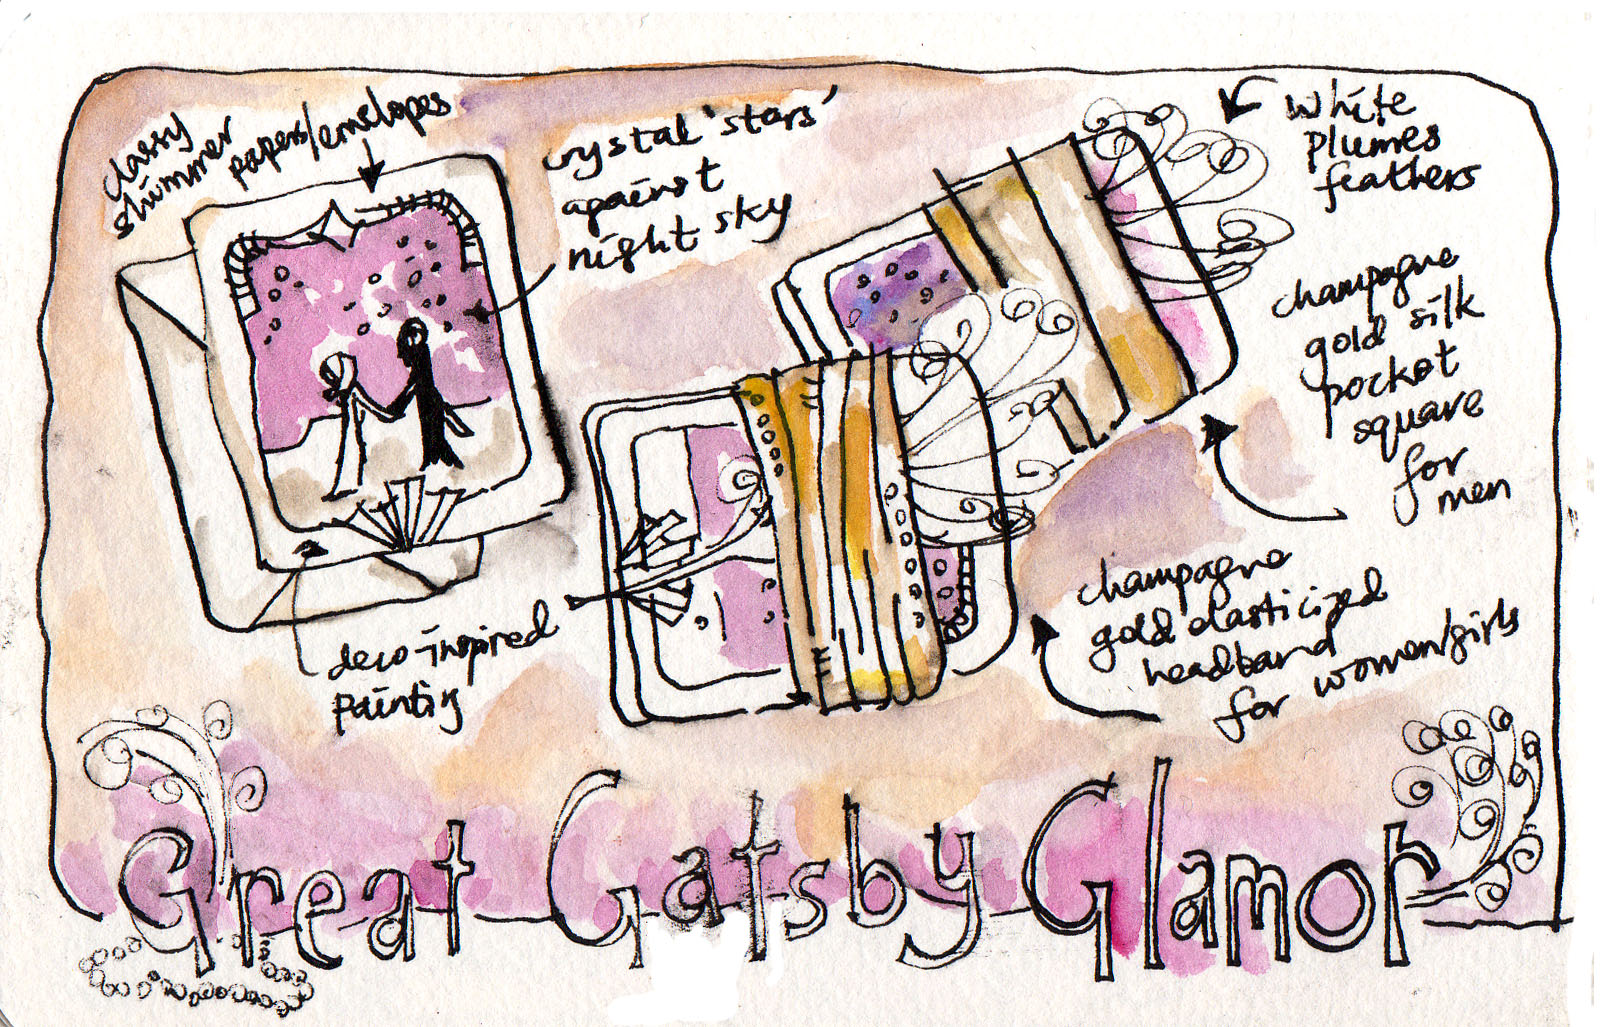 classy
shimmer
papers/envelopes
crystal 'stars'
against
night sky
white
plumes
feathers
champagne
gold silk
pocket
square
for
men
champagne
gold elasticized
headband
for women/girls
deco-inspired
paintig
Great Gatsby Glamor